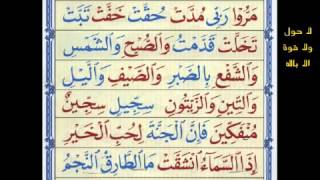 مَرُّوا رَبِّي مُدَّتْ حُقَّتْ خَفَّتْ تَبَّتْ
تَخَلَّتْ قَدَّمَتْ وَالصُّبْحِ وَالشَّمْسِ
وَالشَّفْعِ بِالصَّبْرِ وَالصَّيْفِ وَالَّيْلِ
وَالتِّينِ وَالزَّيْتُونِ سِجِّيلٍ سِجِّينٌ
مُنْفَكِّينَ فَإِنَّ الْجَنَّةَ لِحُبِّ الْخَيْرِ
إِذَا السَّمَاءُ انْشَقَّتْ مَا الطَّارِقُ النَّجْمُ
لا حول
ولا قوة
الا بالله